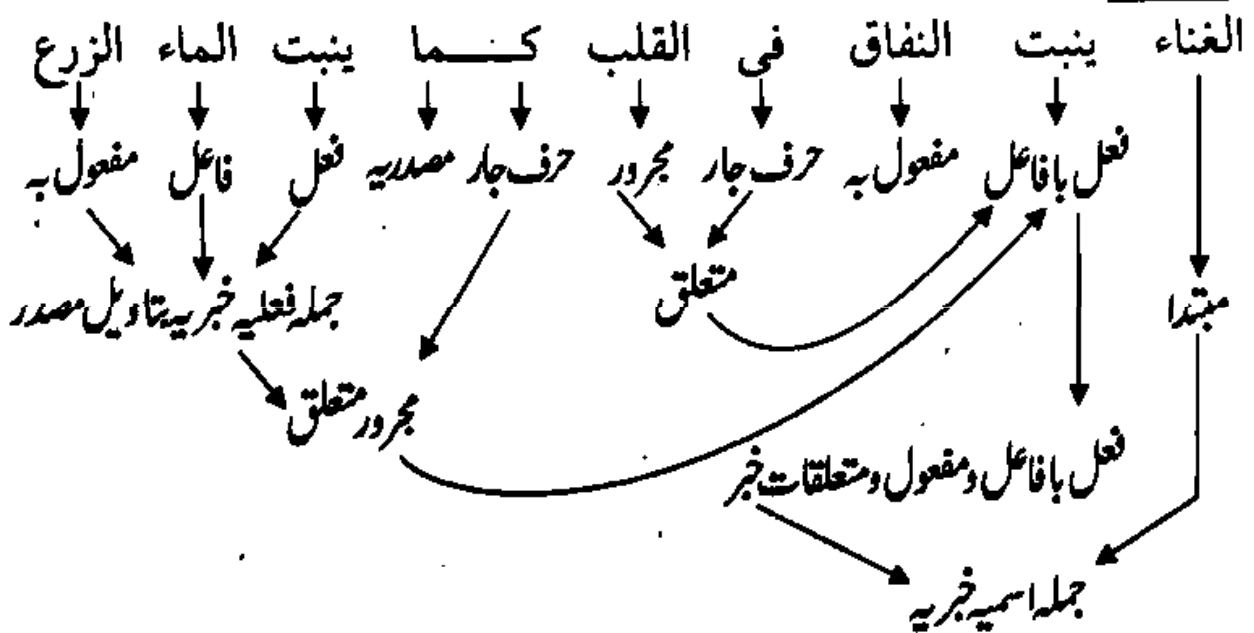 الغناء ينبت النفاق فى القلب كـــما ينبت الماء الزرع
فعل بافاعل مفعول بہ حرف جار مجرور حرف جار مصدریہ فعل فاعل مفعول بہ
متعلق
مبتدا جملہ فعلیہ خبریہ بتاویل مصدر
مجرور متعلق
فعل بافاعل ومفعول ومتعلقات خبر
جملہ اسمیہ خبریہ